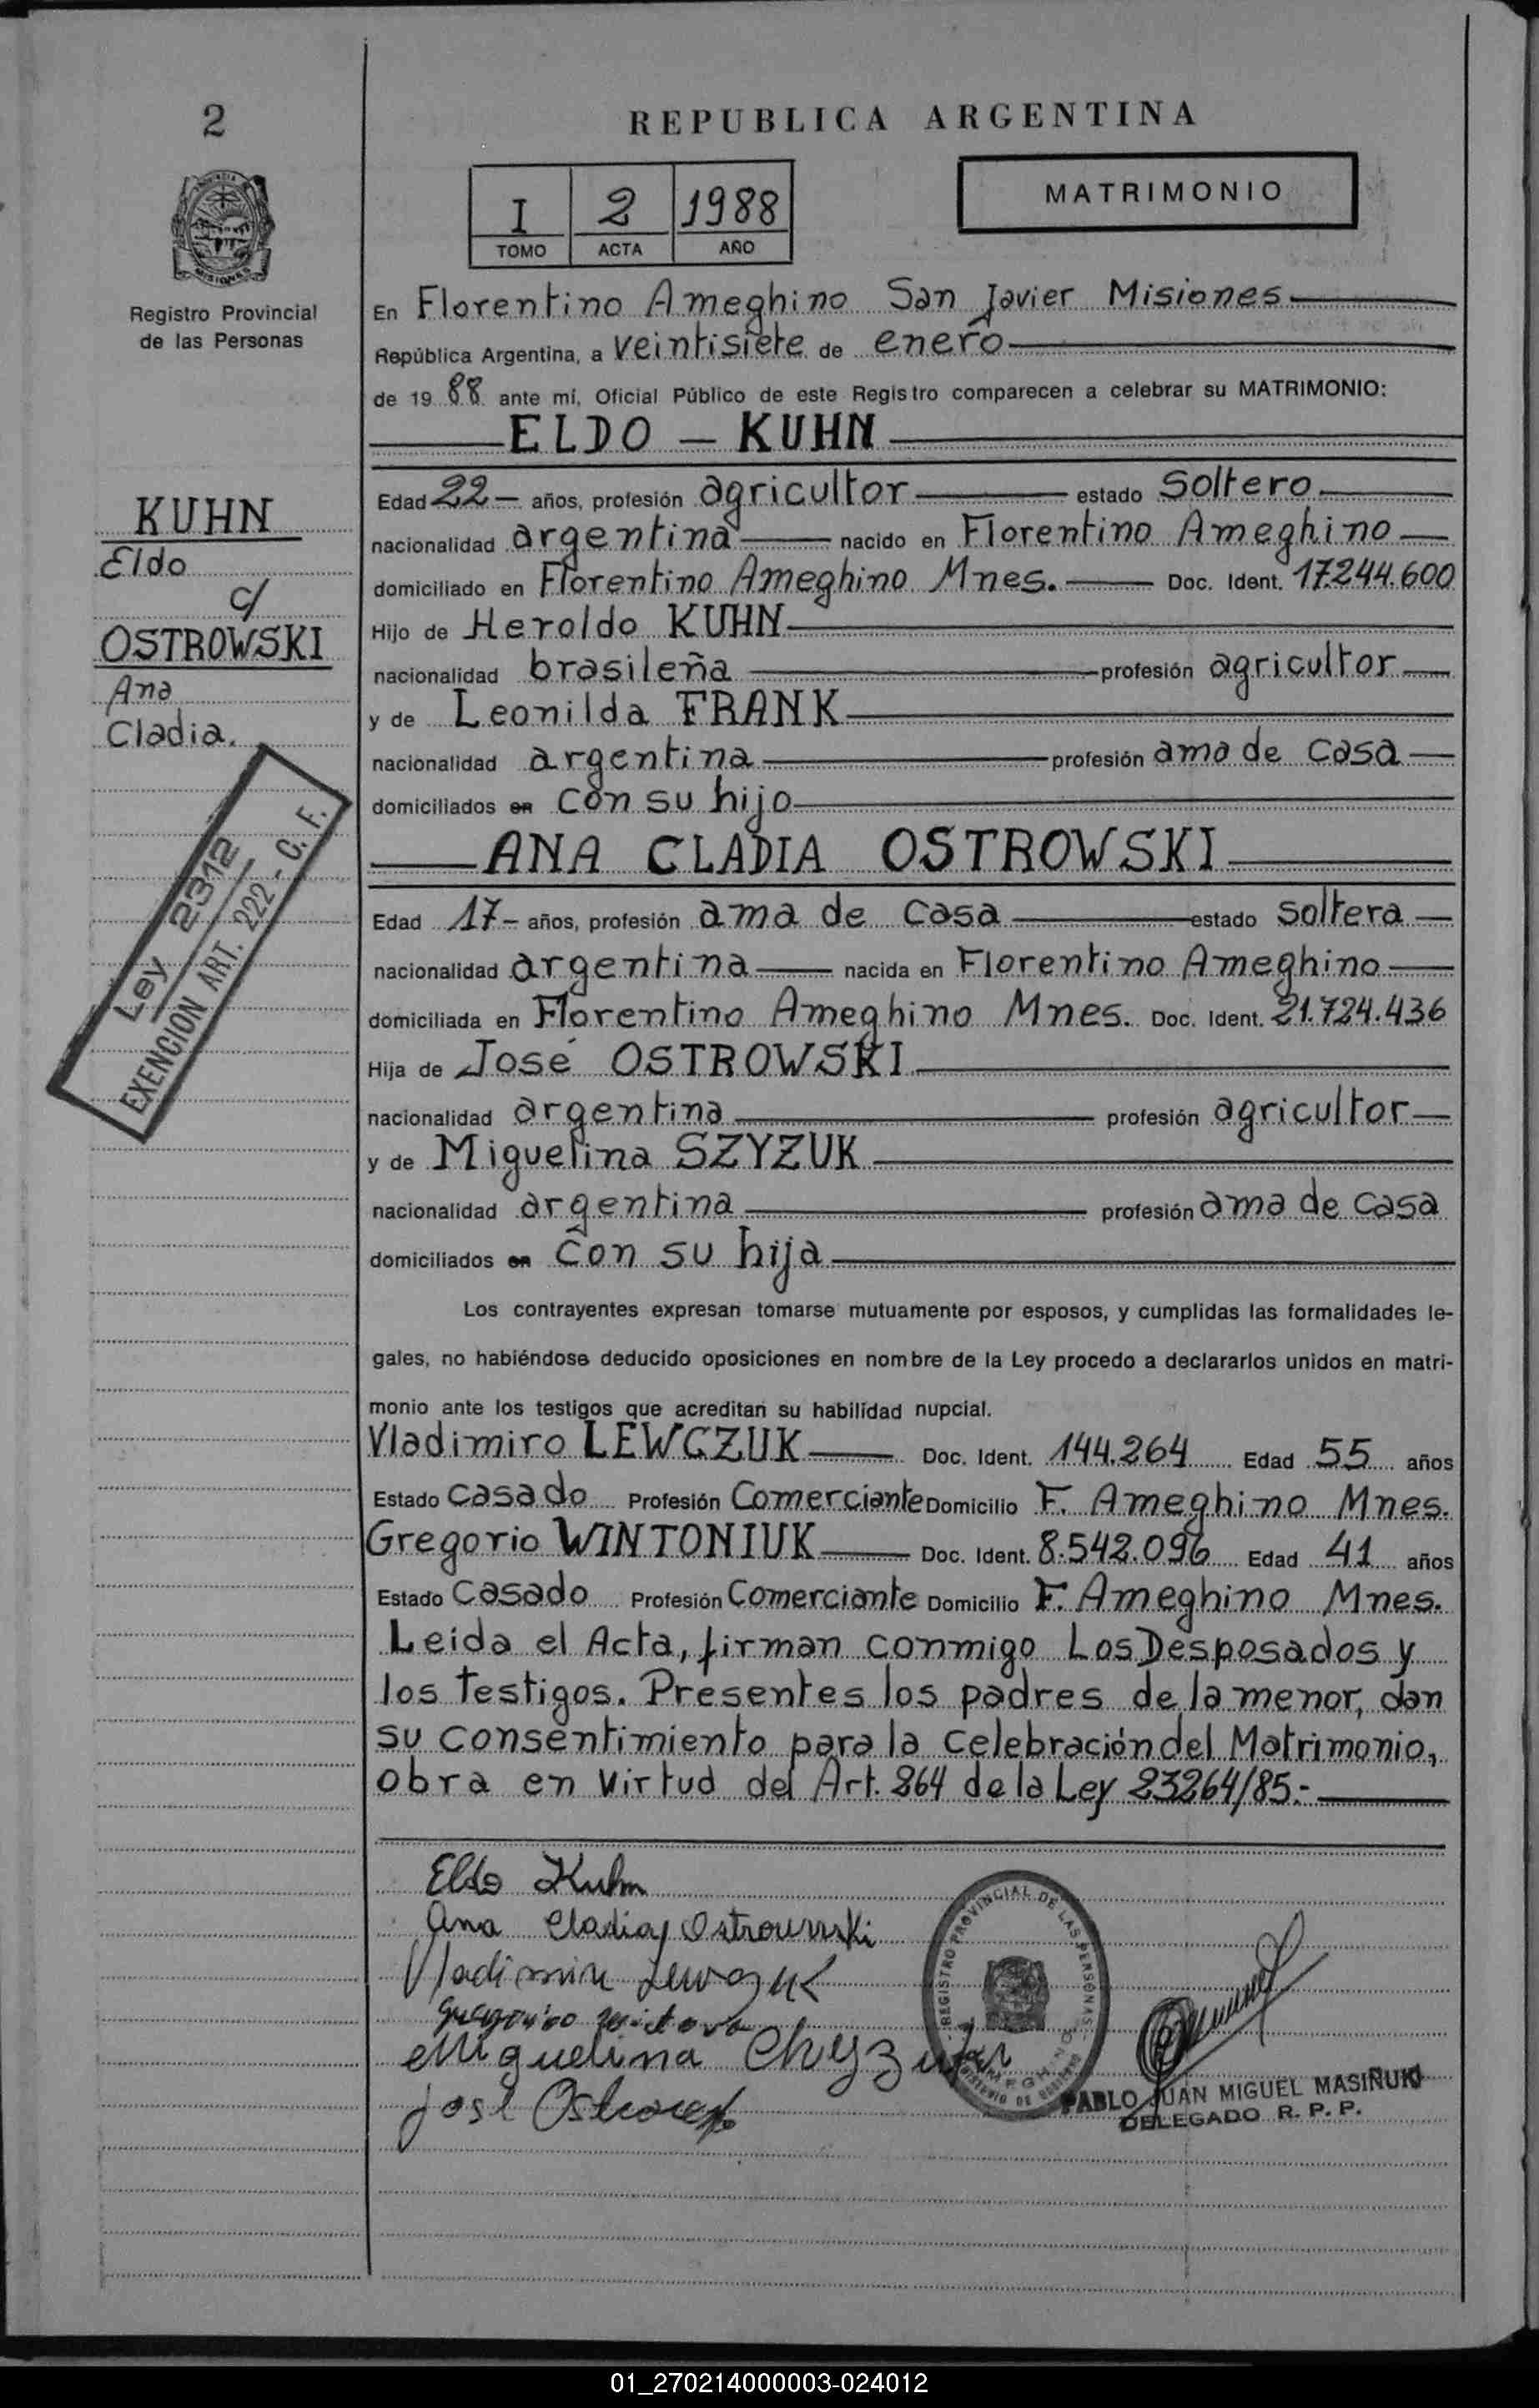 2
REPUBLICA ARGENTINA
PROVINCIA DE
MISIONES
Registro Provincial
de las Personas
I 2 1988
TOMO ACTA AÑO
MATRIMONIO
En Florentino Ameghino San Javier Misiones
República Argentina, a veintisiete de enero
de 19 88 ante mí, Oficial Público de este Registro comparecen a celebrar su MATRIMONIO:
ELDO - KUHN
KUHN
Eldo
c/
OSTROWSKI
Ana
Cladia.
Ley 2312
EXENCION ART. 222 - C. F.
Edad 22 - años, profesión agricultor estado soltero
nacionalidad argentina nacido en Florentino Ameghino
domiciliado en Florentino Ameghino Mnes. Doc. Ident. 17.244.600
Hijo de Heroldo KUHN
nacionalidad brasileña profesión agricultor
y de Leonilda FRANK
nacionalidad argentina profesión ama de casa
domiciliados en con su hijo
ANA CLADIA OSTROWSKI
Edad 17 - años, profesión ama de casa estado soltera
nacionalidad argentina nacida en Florentino Ameghino
domiciliada en Florentino Ameghino Mnes. Doc. Ident. 21.724.436
Hija de José OSTROWSKI
nacionalidad argentina profesión agricultor
y de Miguelina SZYZUK
nacionalidad argentina profesión ama de casa
domiciliados en con su hija
Los contrayentes expresan tomarse mutuamente por esposos, y cumplidas las formalidades le-
gales, no habiéndose deducido oposiciones en nombre de la Ley procedo a declararlos unidos en matri-
monio ante los testigos que acreditan su habilidad nupcial.
Vladimiro LEWCZUK Doc. Ident. 144.264 Edad 55 años
Estado casado Profesión Comerciante Domicilio F. Ameghino Mnes.
Gregorio WINTONIUK Doc. Ident. 8.542.096 Edad 41 años
Estado casado Profesión Comerciante Domicilio F. Ameghino Mnes.
Leida el Acta, firman conmigo Los Desposados y
los Testigos. Presentes los padres de la menor, dan
su consentimiento para la celebración del Matrimonio,
obra en virtud del Art. 264 de la Ley 23264/85.-
Eldo Kuhn
Ana Cladia Ostrowski
Vladimiro Lewczuk
Miguelina
José
REGISTRO PROVINCIAL DE LAS PERSONAS
PABLO JUAN MIGUEL MASIÑUK
DELEGADO R. P. P.
01_270214000003-024012